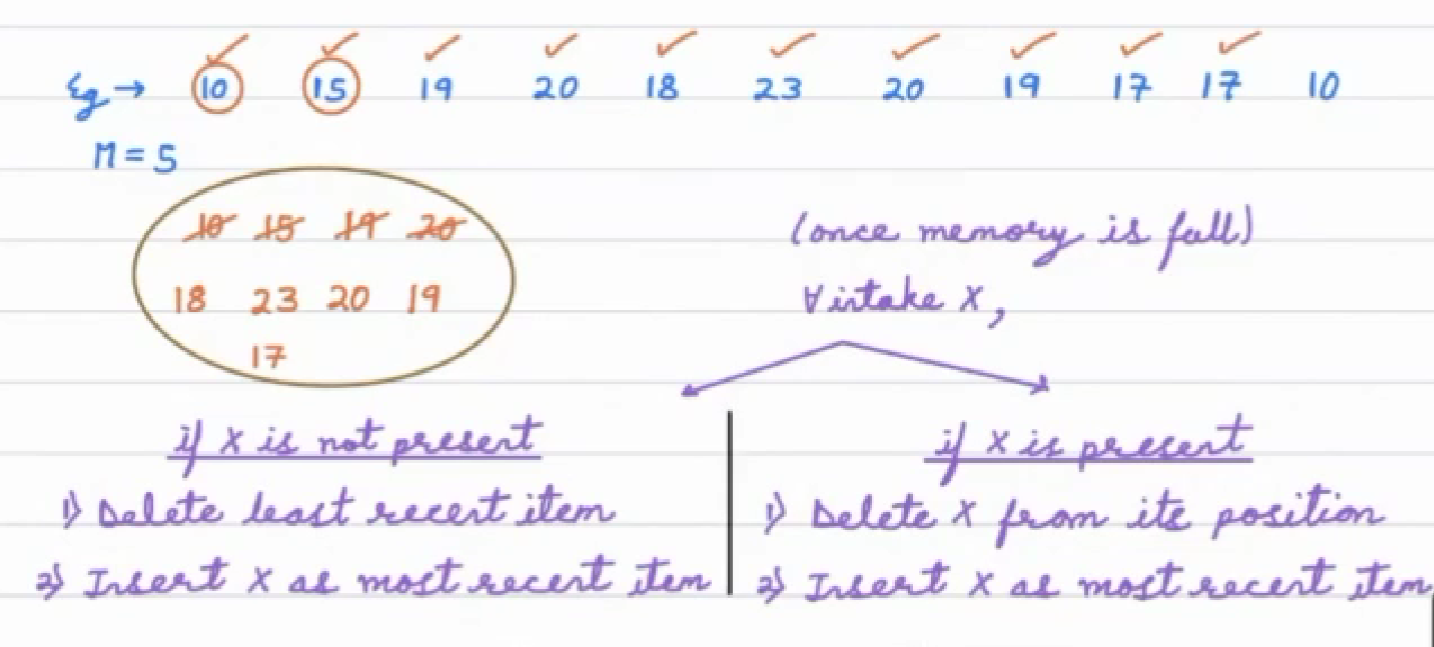 Eg → 10 15 19 20 18 23 20 19 17 17 10
M = 5
10 15 19 20
18 23 20 19
17
(once memory is full)
∀ intake X,
if X is not present
1) Delete least recent item
2) Insert X as most recent item
if X is present
1) Delete X from its position
2) Insert X as most recent item